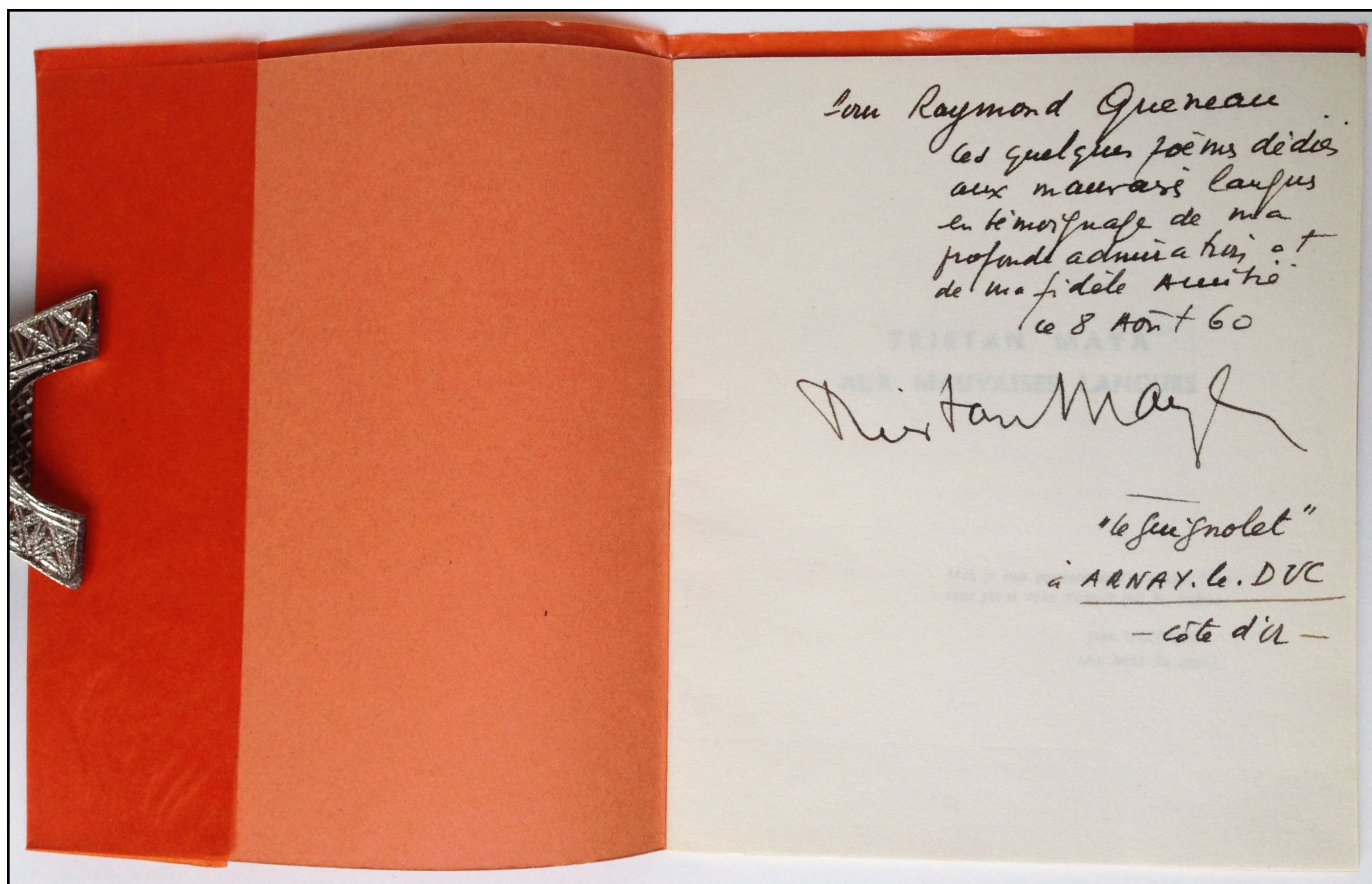 Pour Raymond Queneau
ces quelques poèmes dédiés
aux mauvaises langues
en témoignage de ma
profonde admiration et
de ma fidèle Amitié
ce 8 Août 60
TRISTAN MAYA
AUX MAUVAISES LANGUES
Tristan Maya
"le guignolet"
à ARNAY.le.DUC
— côte d'or —